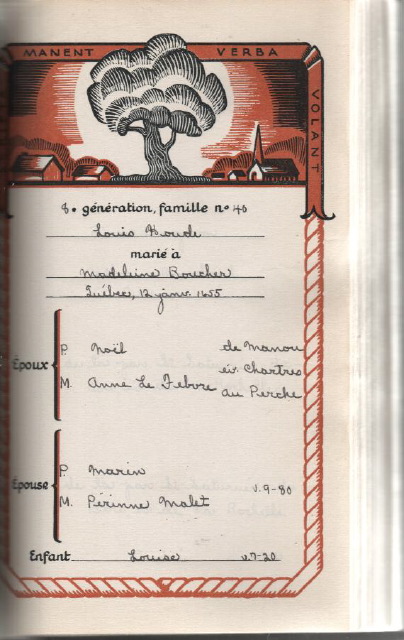 MANENT VERBA
VOLANT
8. génération, famille nº 40
Louis Houde
marié à
Madeleine Boucher
Québec, 12 janv. 1655
Époux
P. Noël de Manou
év. Chartres
M. Anne Le Febvre au Perche
Épouse
P. Marin
v. 9-80
M. Périnne Malet
Enfant Louise v. 7-20